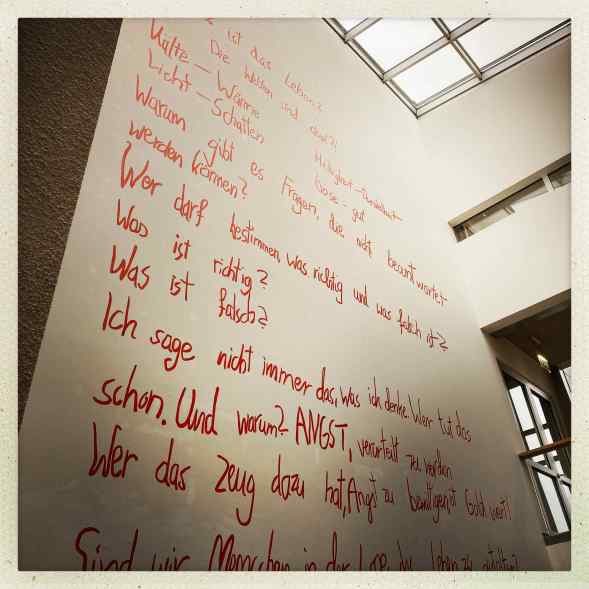 ist das Leben?
Die Welten sind
Kälte – Wärme Helligkeit – Dunkelheit
Licht – Schatten böse – gut
Warum gibt es Fragen, die nicht beantwortet
werden können?
Wer darf bestimmen, was richtig und was falsch ist?
Was ist richtig?
Was ist falsch?
Ich sage nicht immer das, was ich denke. Wer tut das
schon. Und warum? ANGST, verurteilt zu werden
Wer das Zeug dazu hat, Angst zu bewältigen, ist Gold wert!
Sind wir Menschen in der Lage, das Leben zu